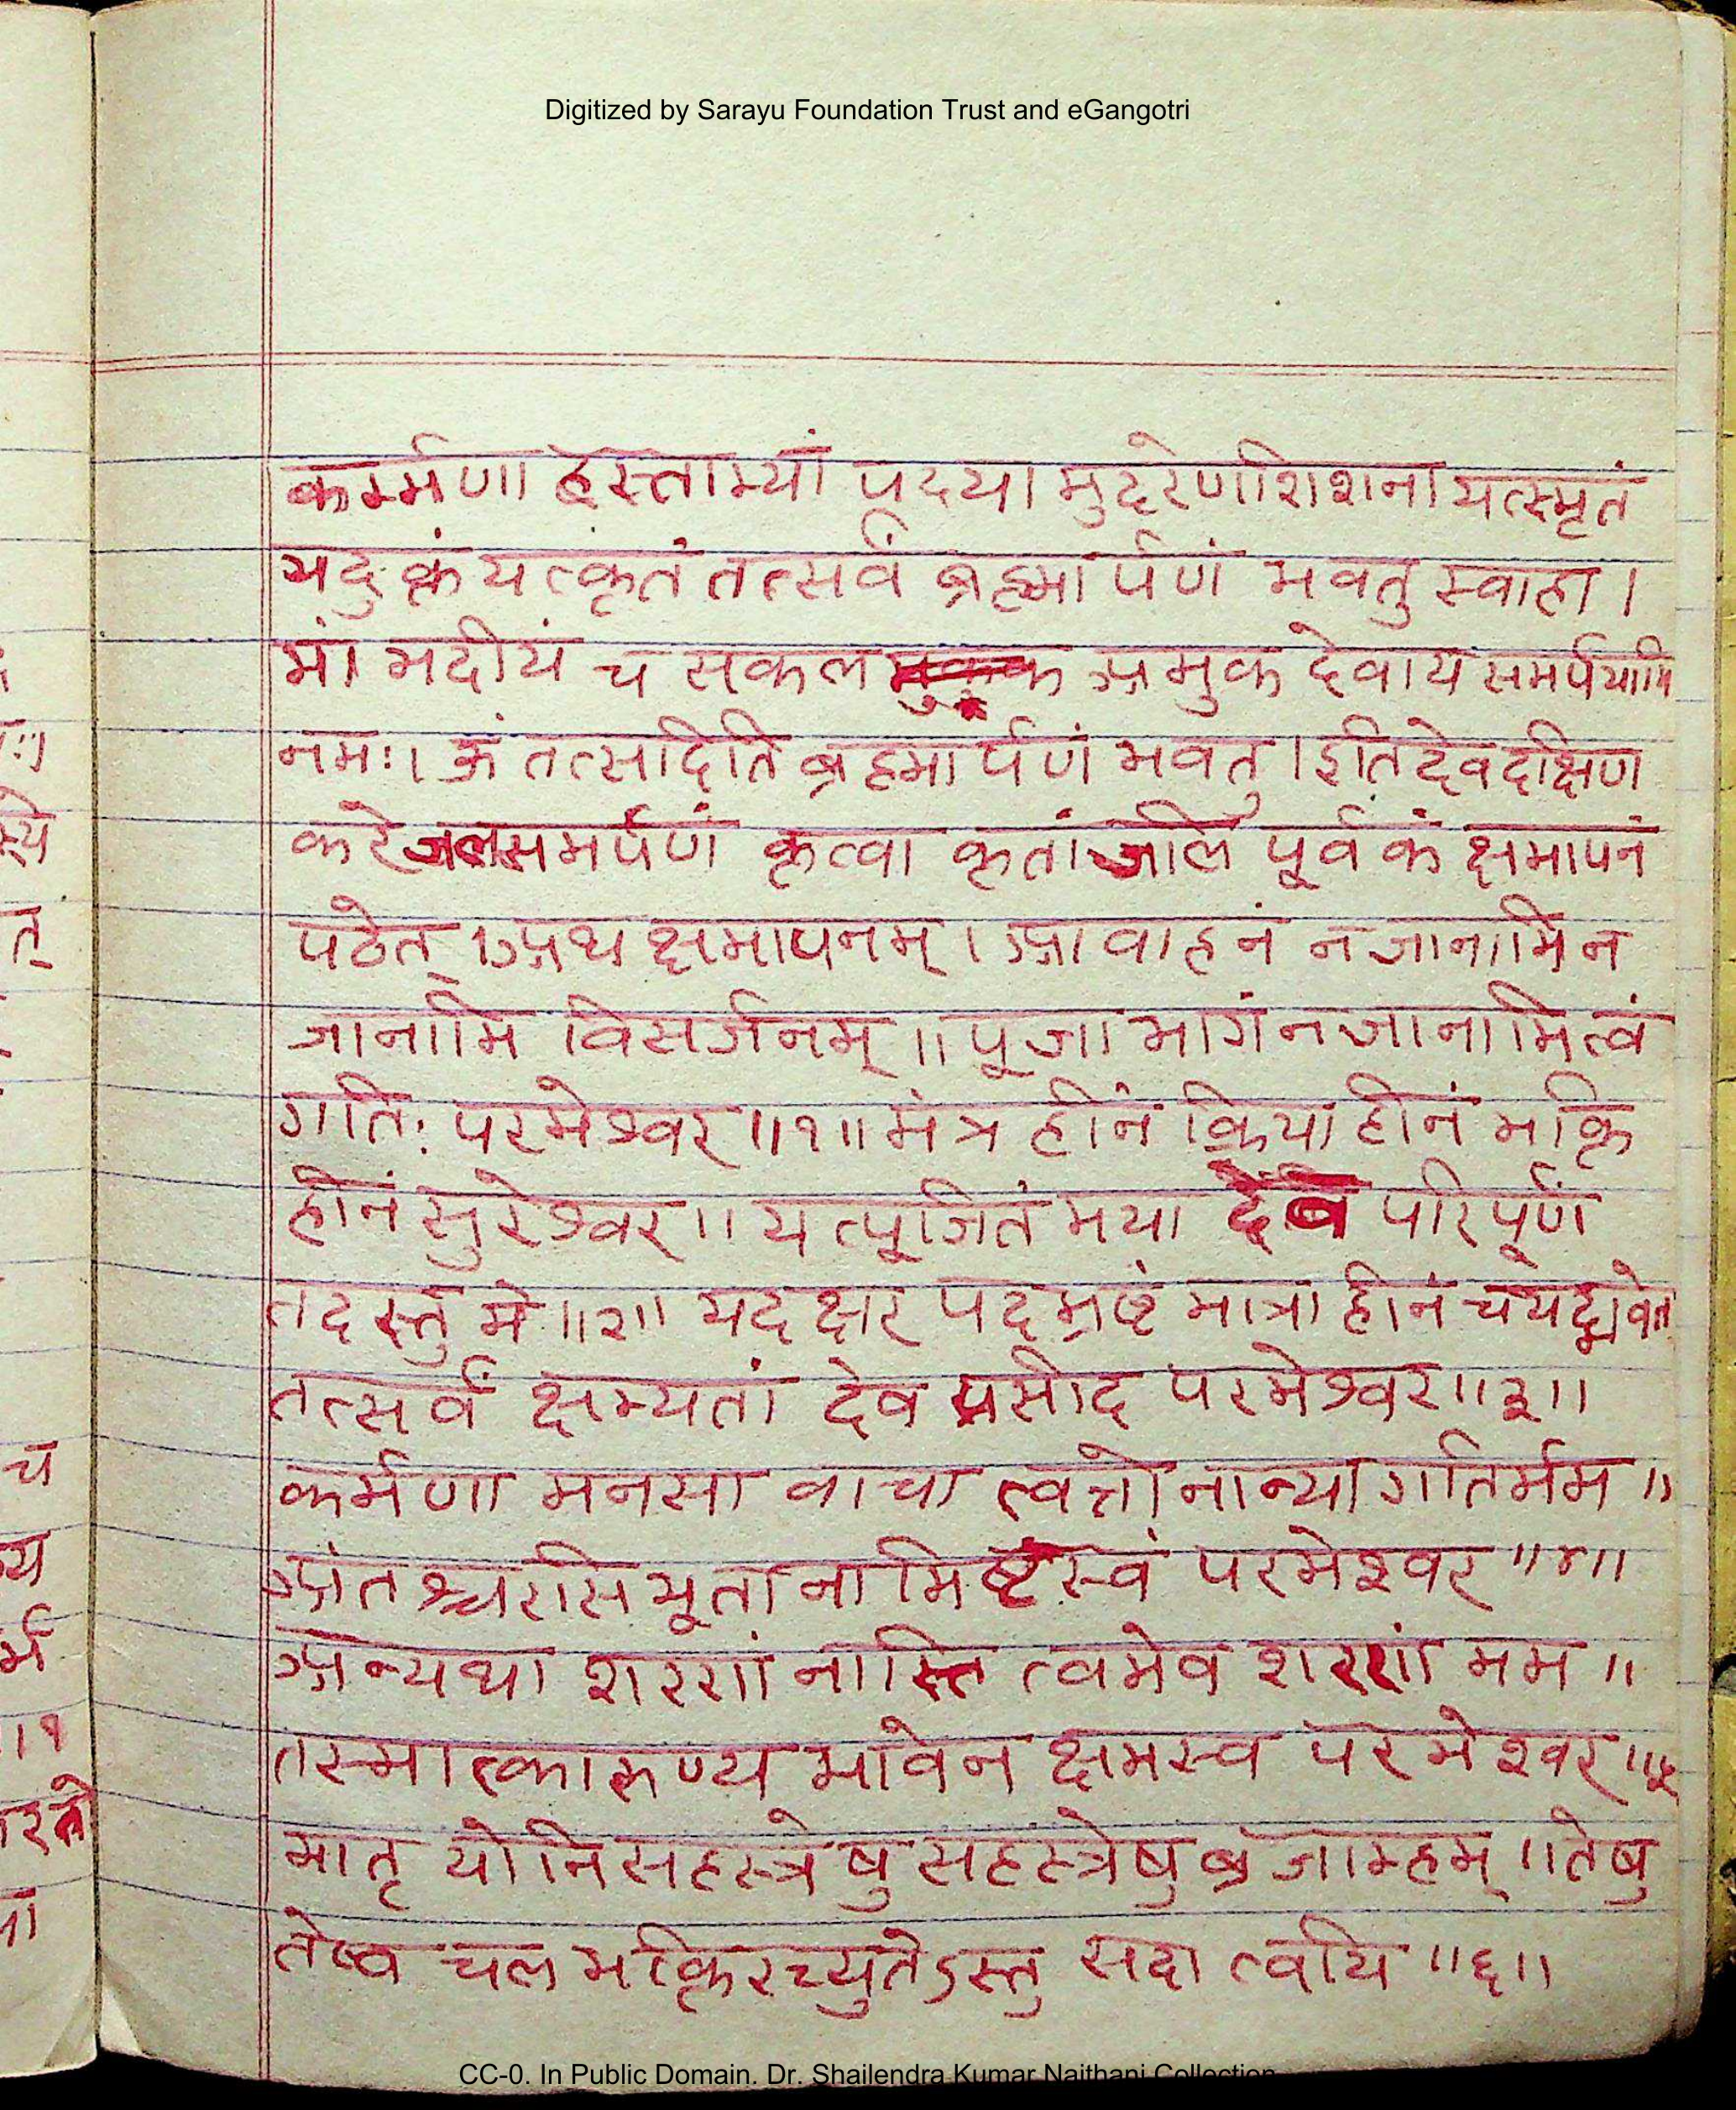 Digitized by Sarayu Foundation Trust and eGangotri
कर्म्मणा हस्ताभ्यां पदया मुदरेणशिशना यत्स्मृतं
यदुक्तं यत्कृतं तत्सर्वं ब्रह्मार्पणं भवतु स्वाहा ।
मां मदीयं च सकल अमुक देवाय समर्पयामि
नमः। ॐ तत्सदिति ब्रह्मार्पणं भवतु । इति देव दक्षिण
करे जलसमर्पणं कृत्वा कृतांजलि पूर्वकं क्षमापनं
पठेत् । अथ क्षमापनम् । आवाहनं न जानामि न
जानामि विसर्जनम् ॥ पूजा भागं न जानामि त्वं
गतिः परमेश्वर ॥१॥ मंत्र हीनं क्रिया हीनं भक्ति
हीनं सुरेश्वर ॥ यत्पूजितं मया देव परिपूर्णं
तदस्तु मे ॥२॥ यदक्षर पदभ्रष्टं मात्रा हीनं च यद्भवेत
तत्सर्वं क्षम्यतां देव प्रसीद परमेश्वर ॥३॥
कर्मणा मनसा वाचा त्वत्तो नान्या गतिर्मम ॥
अंतश्चरसि भूतानामिष्टस्त्वं परमेश्वर ॥४॥
अन्यथा शरणं नास्ति त्वमेव शरणं मम ॥
तस्मात्कारुण्य भावेन क्षमस्व परमेश्वर ॥५
मातृ योनि सहस्त्रेषु सहस्त्रेषु ब्रजाम्हम् ॥ तेषु
तेष्व चल भक्तिरच्युतेऽस्तु सदा त्वयि ॥६॥
CC-0. In Public Domain. Dr. Shailendra Kumar Naithani Collection